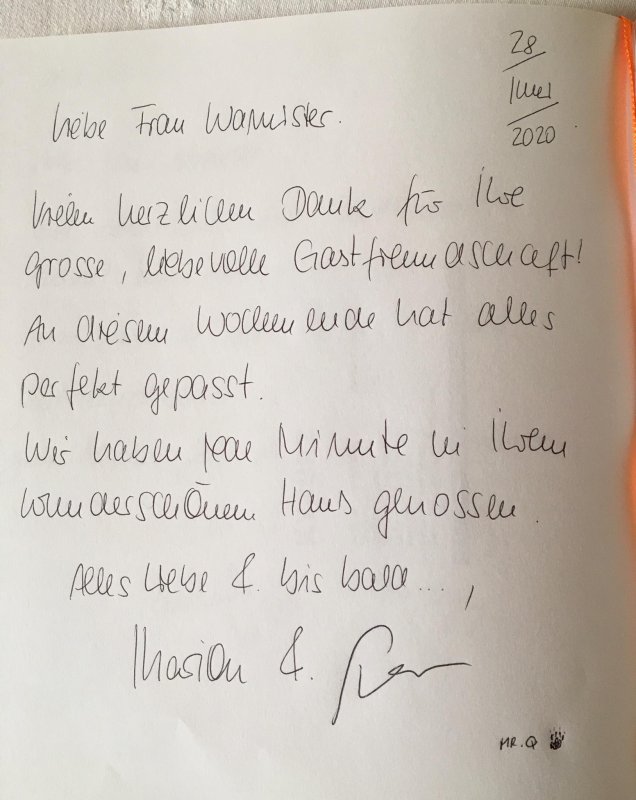 28
Juni
2020
Liebe Frau Wannister.
Vielen herzlichen Dank für Ihre
grosse, liebevolle Gastfreundschaft!
An diesem Wochenende hat alles
perfekt gepasst.
Wir haben jede Minute in Ihrem
wunderschönen Haus genossen.
Alles Liebe & bis bald...,
&
MR. Q